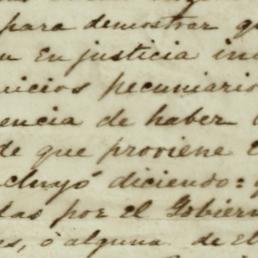 para demostrar q
en justicia in
uicios pecuniario
encia de haber
de que proviene
cluyó diciendo:
das por el Gobiern
es, ó alguna de el